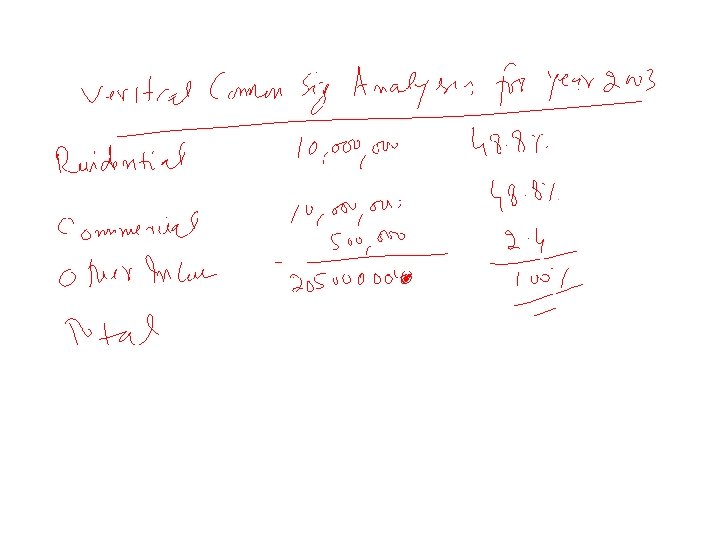 Vertical Common Sig Analysis for year 2003
Residential 10,000,000 48.8%
Commercial 10,000,000 48.8%
Other Income 500,000 2.4
Total 20500000 100%